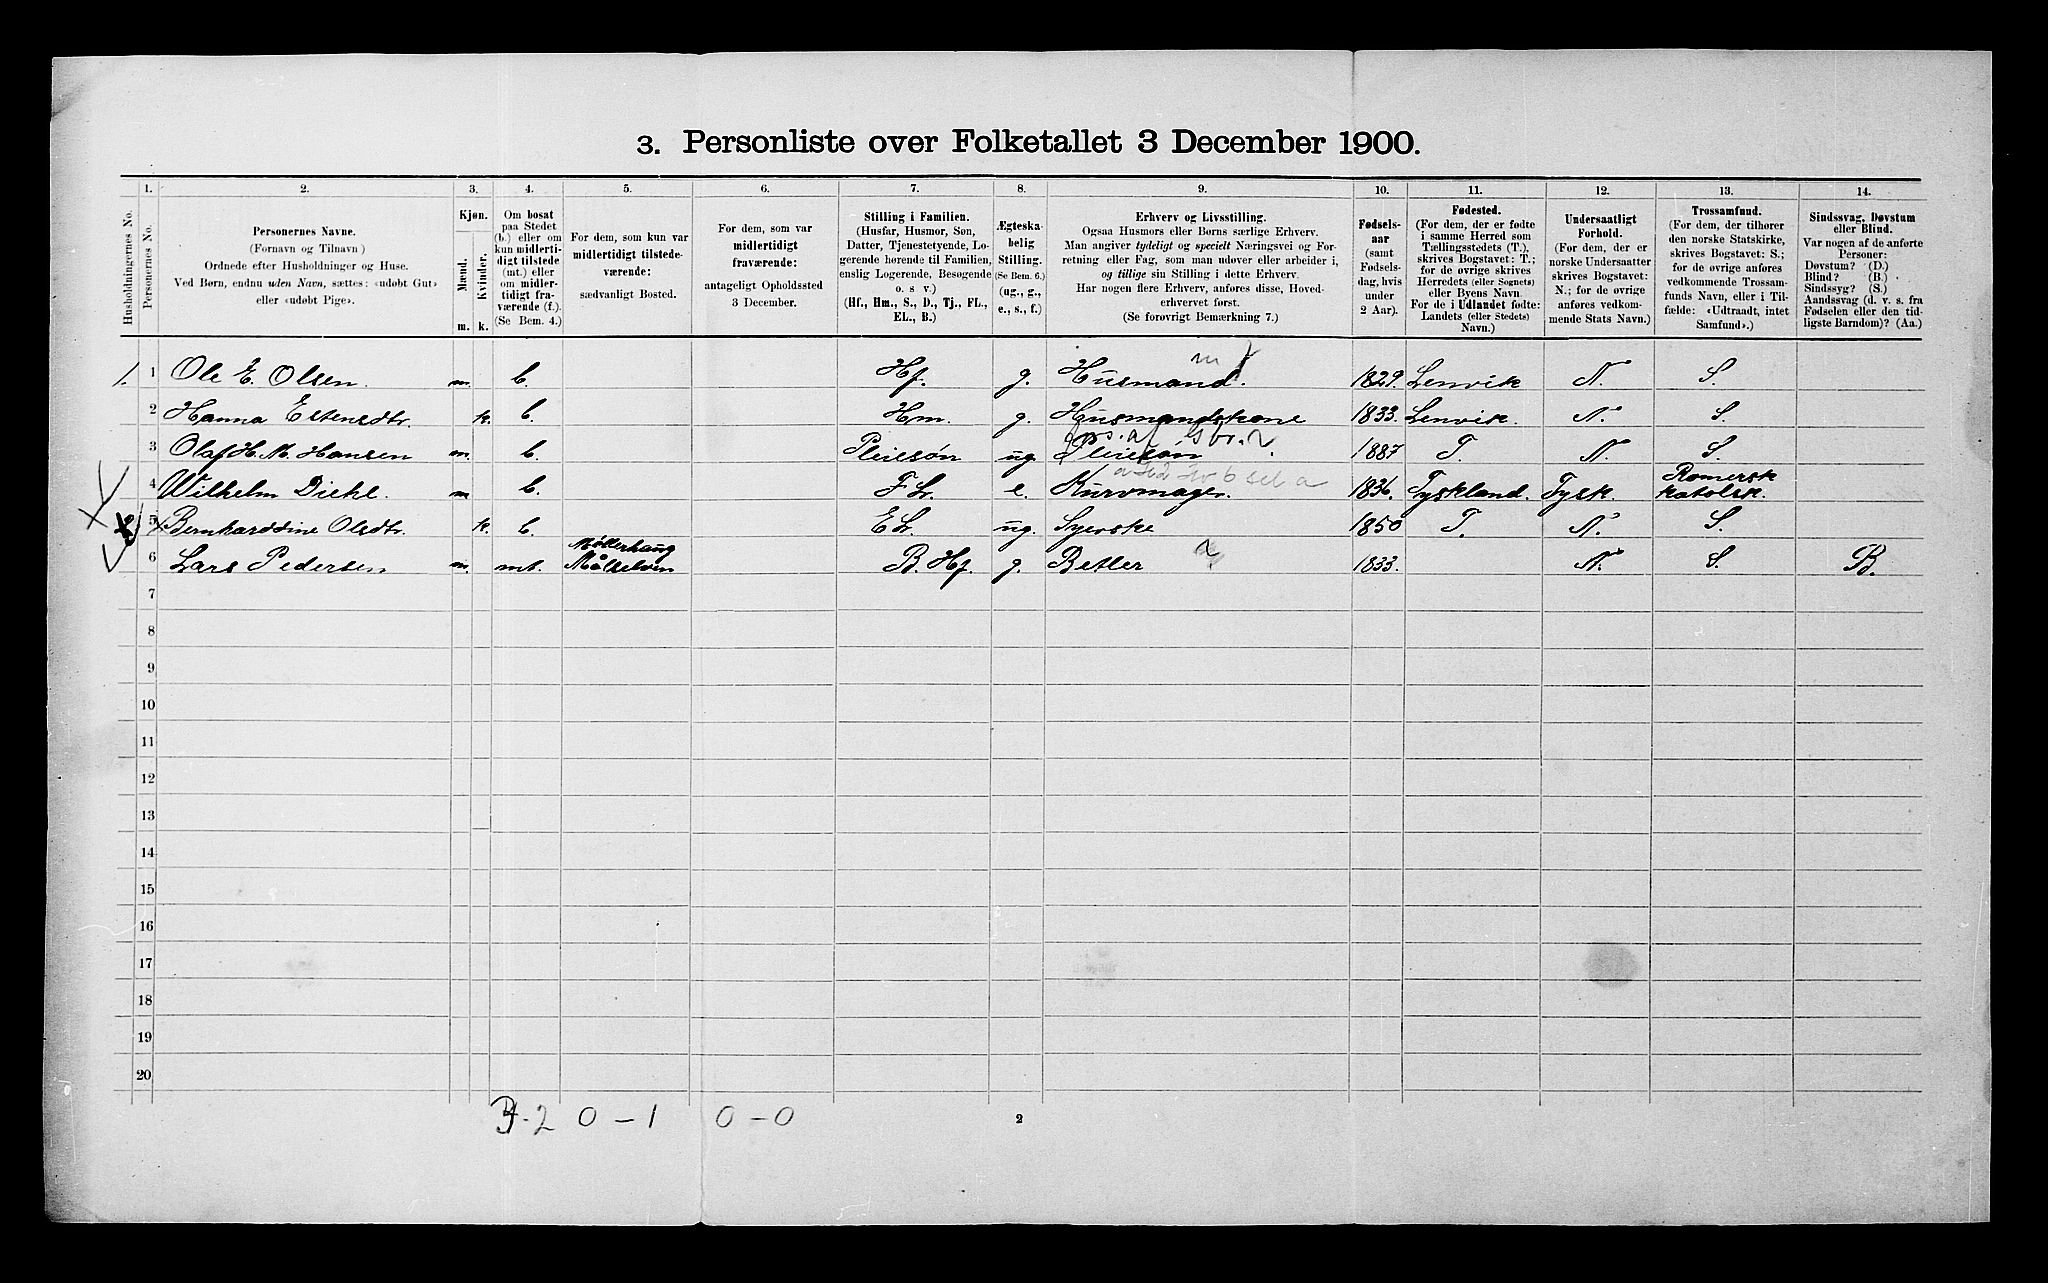 3. Personliste over Folketallet 3 December 1900.
1. 2. 3. 4. 5. 6. 7. 8. 9. 10. 11. 12. 13. 14.
Husholdningernes No.
Personernes No.
Personernes Navne.
(Fornavn og Tilnavn)
Ordnede efter Husholdninger og Huse.
Ved Børn, endnu uden Navn, sættes: «udøbt Gut»
eller «udøbt Pige».
Kjøn.
Mænd. Kvinder.
m. k.
Om bosat
paa Stedet
(b.) eller om
kun midlerti-
digt tilstede
(mt.) eller
om midler-
tidigt fra-
værende (f.).
(Se Bem. 4.)
For dem, som kun var
midlertidigt tilstede-
værende:
sædvanligt Bosted.
For dem, som var
midlertidigt
fraværende:
antageligt Opholdssted
3 December.
Stilling i Familien.
(Husfar, Husmor, Søn,
Datter, Tjenestetyende, Lo-
gerende hørende til Familien,
enslig Logerende, Besøgende
o. s v.)
(Hf., Hm., S., D., Tj., FL.,
EL., B.)
Ægteska-
belig
Stilling.
(Se Bem. 6.)
(ug., g.,
e., s., f.)
Erhverv og Livsstilling.
Ogsaa Husmors eller Børns særlige Erhverv.
Man angiver tydeligt og specielt Næringsvei og For-
retning eller Fag, som man udøver eller arbeider i,
og tillige sin Stilling i dette Erhverv.
Har nogen flere Erhverv, anføres disse, Hoved-
erhvervet først.
(Se forøvrigt Bemærkning 7.)
Fødsels-
aar
(samt
Fødsels-
dag, hvis
under
2 Aar).
Fødested.
(For dem, der er fødte
i samme Herred som
Tællingsstedets (T.),
skrives Bogstavet: T.;
for de øvrige skrives
Herredets (eller Sognets)
eller Byens Navn.
For de i Udlandet fødte:
Landets (eller Stedets)
Navn.)
Undersaatligt
Forhold.
(For dem, der er
norske Undersaatter
skrives Bogstavet:
N.; for de øvrige
anføres vedkom-
mende Stats Navn.)
Trossamfund.
(For dem, der tilhører
den norske Statskirke,
skrives Bogstavet: S.;
for de øvrige anføres
vedkommende Trossam-
funds Navn, eller i Til-
fælde: «Udtraadt, intet
Samfund».)
Sindssvag, Døvstum
eller Blind.
Var nogen af de anførte
Personer:
Døvstum? (D.)
Blind? (B.)
Sindssyg? (S.)
Aandssvag (d. v. s. fra
Fødselen eller den tid-
ligste Barndom)? (Aa.)
1. 1 Ole E. Olsen. m. b. Hf. g. Husmand. 1829. Lenvik N. S.
2 Hanna Estensdtr. k. b. Hm. g. Husmandskone 1833. Lenvik. N. S.
3 Olaf H. M. Hansen m. b. Pleiesøn ug Pleiesøn 1887 T. N. S
4 Wilhelm Diehl. m b. F L. e. Kurvmager. 1836. Tyskland. Tysk. Romersk katolsk.
5 Bernharddine Olsdtr. k. b. E L. ug. Syerske 1850 T. N. S.
6 Lars Pedersen m. mt. Møllerhaug Målselven B. Hf. g. Betler 1833. N. S. B.
7
8
9
10
11
12
13
14
15
16
17
18
19
20
2 0 – 1 0 – 0
2